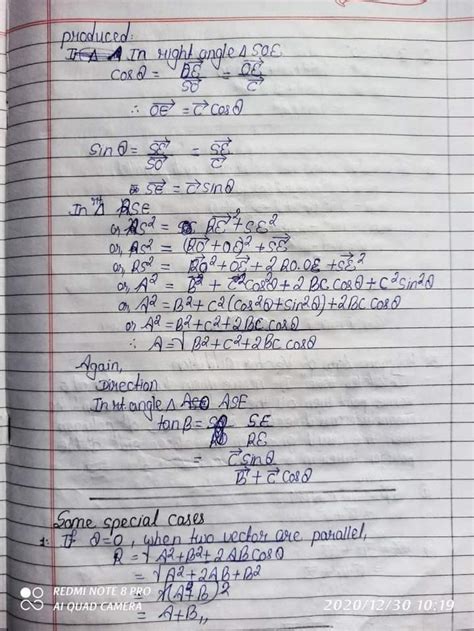 produced:
In right angle Δ SOE
cosθ = BE/SO = OE/C
∴ OE = C cosθ
sinθ = SE/SO = SE/C
SE = C sinθ
In rt Δ RSE
or RS² = RE² + SE²
or, RS² = (RO + OE)² + SE²
or, RS² = RO² + OE² + 2 RO.OE + SE²
or, A² = B² + C²cos²θ + 2 BC cosθ + C²sin²θ
or, A² = B² + C²(cos²θ + sin²θ) + 2BC cosθ
or A² = B² + C² + 2BC cosθ
∴ A = √B² + C² + 2BC cosθ
Again,
Direction
In rt. angle Δ ASE
tan B = SE
RE
= C sinθ
B + C cosθ
Some special cases
1. If θ=0, when two vector are parallel,
R = √A² + B² + 2AB cosθ
= √A² + 2AB + B²
= √(A+B)²
= A+B,,
REDMI NOTE 8 PRO
AI QUAD CAMERA
2020/12/30 10:19